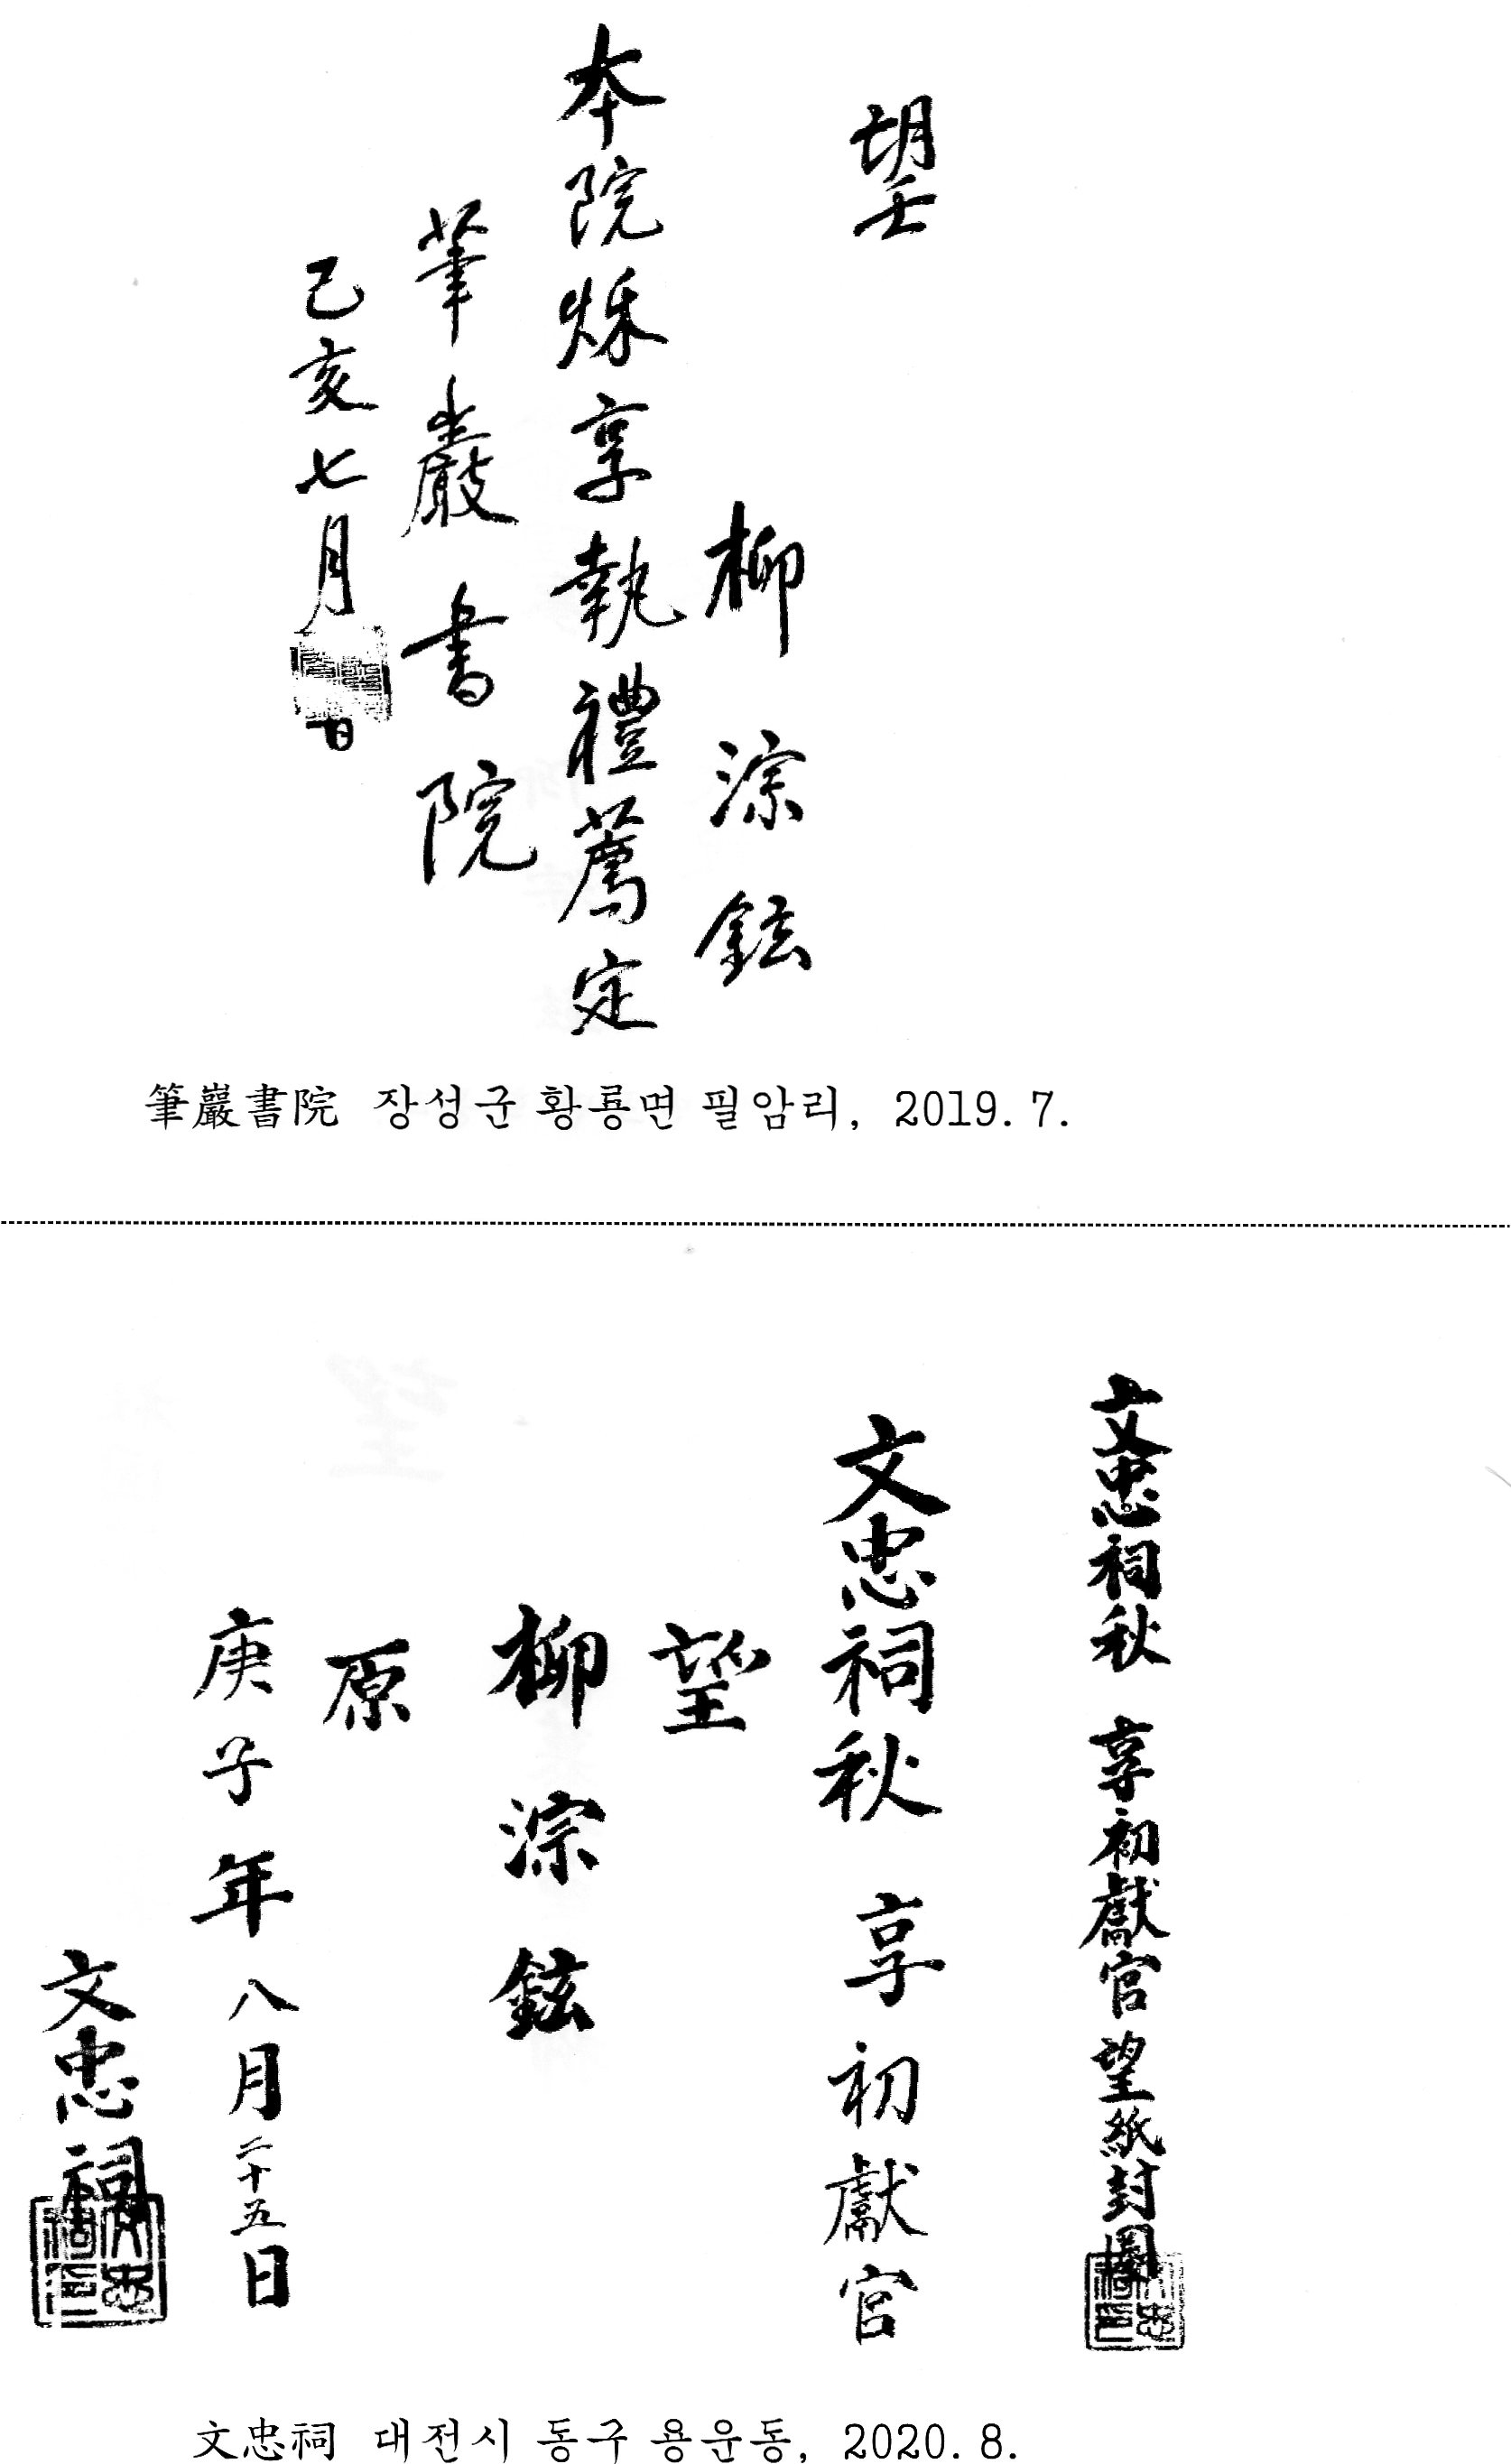 望
柳淙鉉
本院秌享執禮薦定
筆巖書院
己亥七月 日
筆巖書院 장성군 황룡면 필암리, 2019. 7.
文忠祠秋享初獻官望紙封
文忠祠秋享初獻官
望
柳淙鉉
原
庚子年八月二十五日
文忠祠
文忠祠 대전시 동구 용운동, 2020. 8.